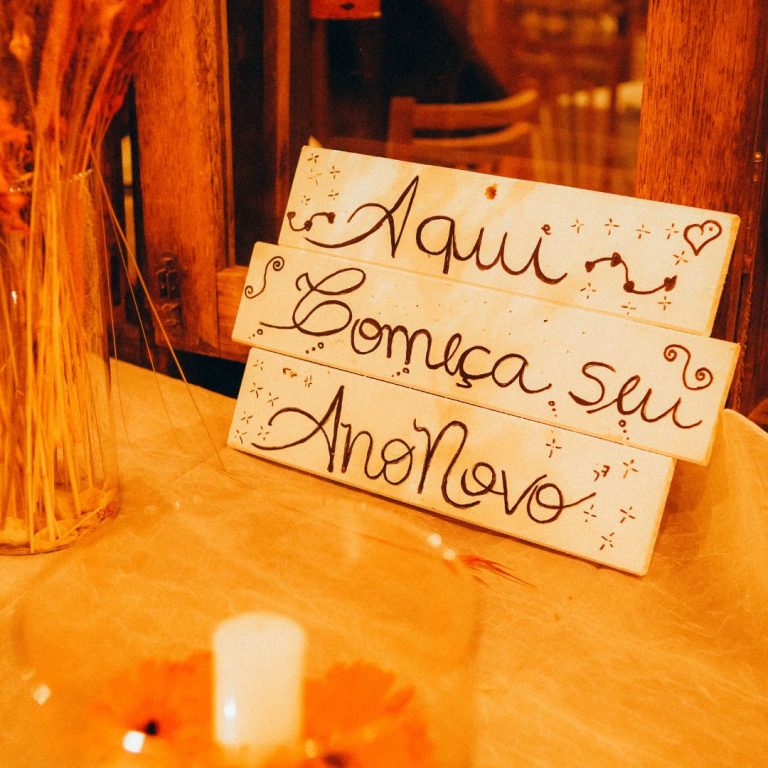 Aqui
Começa seu
Ano Novo